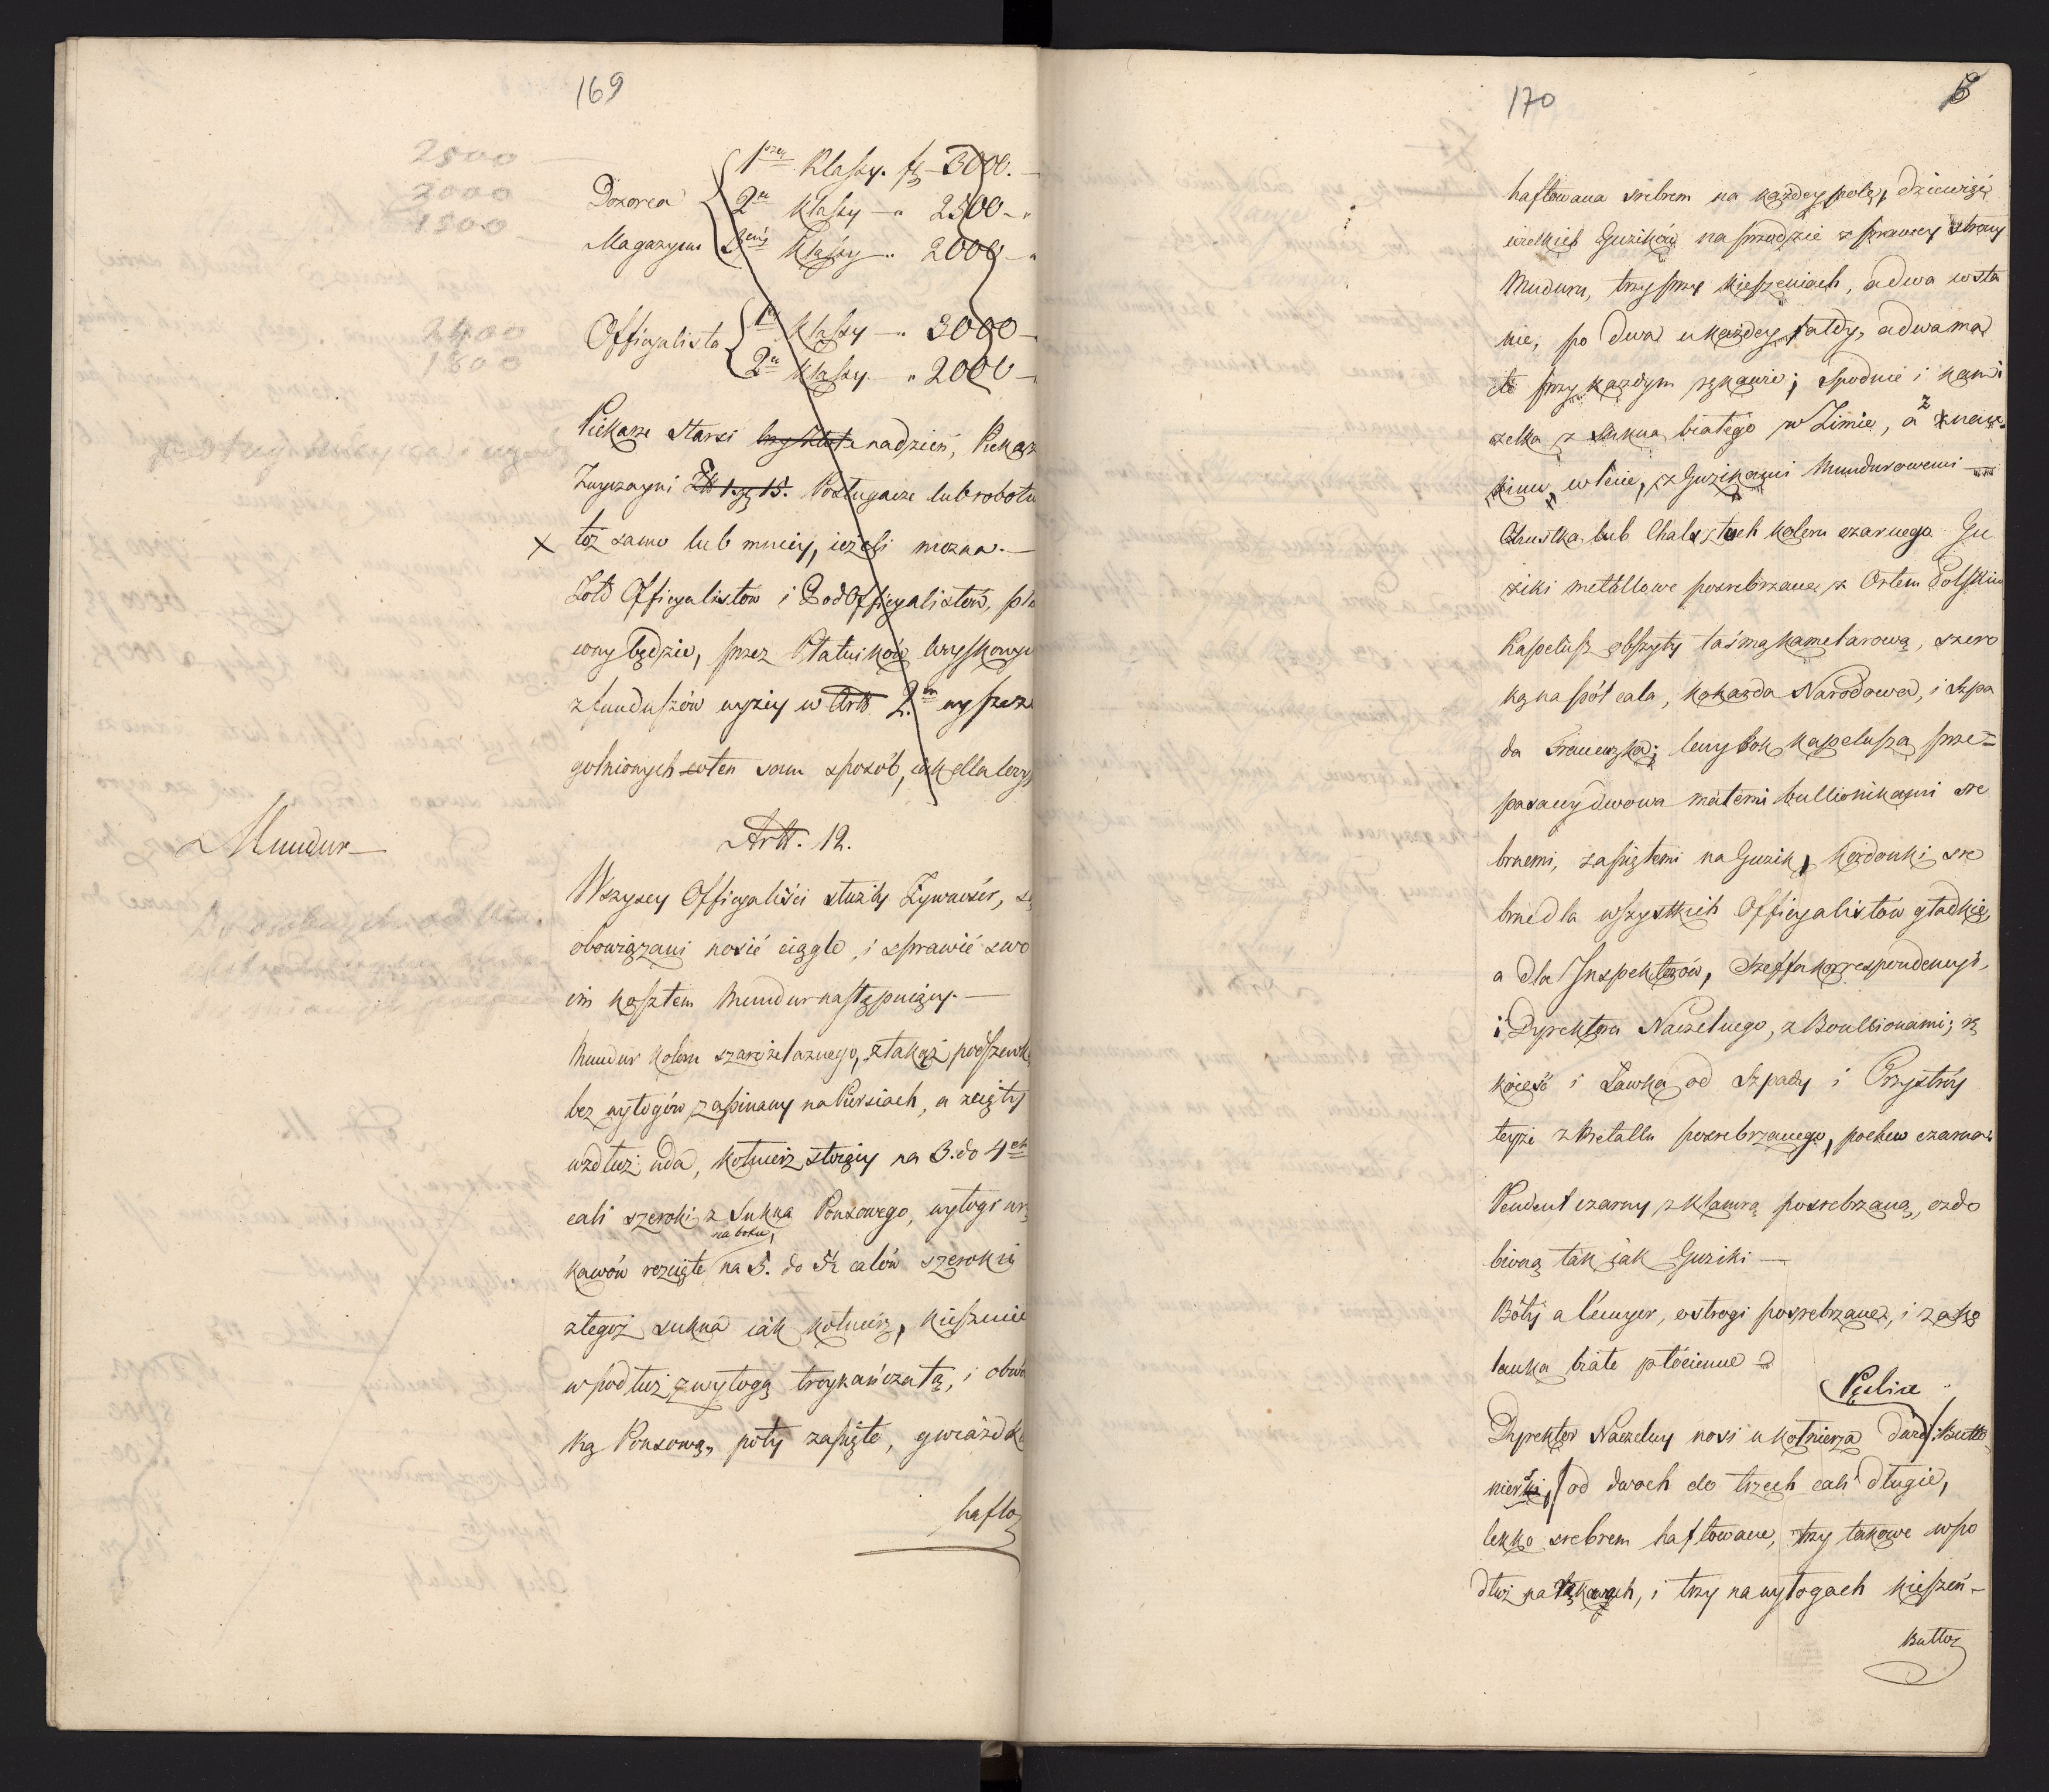 169
2500
2000
1500
Dozorca
Magazynu
1szey Klassy. fl 3000.
2ey Klassy — " 2500 — "
3ciey Klassy " 2000 — "
2400
1800
Officyalista
1ey Klassy — " 3000 —
2ey Klassy — " 2000 —
Piekarze Starsi na dzień, Piekarz
Zwyczayni Zł 1. gr 15. Posługacze lub robotn
toż samo lub mniey, ieżeli można. —
Żołd Officyalistów i PodOfficyalistów, pła
cony będzie, przez Płatników Woyskowych
z funduszów wyżey w Art. 2m wyszcze
gólnionych w ten sam sposób, iak dla Woysk
Mundur —
Artt. 12.
Wszyscy Officyaliści służby Żywności, są
obowiązani nosić ciągle, i sprawić swo
im kosztem Mundur następuiący. —
Mundur koloru szaro żelaznego, z takąż podszewką
bez wyłogów zapinany na Piersiach, a zcięty
wzdłuż uda, kołnierz stoiący na 3. do 4ch
cali szeroki z Sukna Ponsowego, wyłogi u rę
kawów rozcięte na boku, na 5. do 5½ calów szerokie
z tegoż sukna iak kołnierz, kieszenie
w podłuż z wyłogą troykańczatą, i obwód
ką Ponsową, poły zapięte, gwiazdką
hafto
170
haftowana srebrem na każdey pole, dziewięć
wielkich Guzików na przodzie z prawey strony
Munduru, trzy przy kieszeniach, a dwa w sta
nie, po dwa u każdey fałdy, a dwa ma
łe przy każdym rękawie; Spodnie i kami
zelka z Sukna białego w Zimie, a z nan
kinu w lecie, z Guzikami Mundurowemi —
Chustka lub Chalsztuch koloru czarnego Gu
ziki metallowe posrebrzane z Orłem Polskim
Kapelusz obszyty taśmą kamelarową, szero
ką na pół cala, kokarda Narodowa, i Szpa
da Francuzka; lewy bok kapelusza prze=
pasany dwoma małemi bullionikami sre
brnemi, zapiętemi na Guzik, Kordonki sre
brne dla wszystkich Officyalistów gładkie,
a dla Inspektorów, Szeffa korrespondencyi,
i Dyrektora Naczelnego, z Boullionami; rę
koieść i Gawka od Szpady i Przystróy
teyże z Metallu posrebrzanego, pochew czarna
Pendent czarny z klamrą posrebrzaną, ozdo
bioną tak iak Guziki —
Bóty a l'écuyer, ostrogi posrebrzane, i zako
lanka białe płócienne
Pętlice
Dyrektor Naczelny nosi u kołnierza dwie Butto
nierki, od dwoch do trzech cali długie,
lekko srebrem haftowane, trzy takowe wpo
dłuż na rękawach, i trzy na wyłogach kieszeń —
Butto